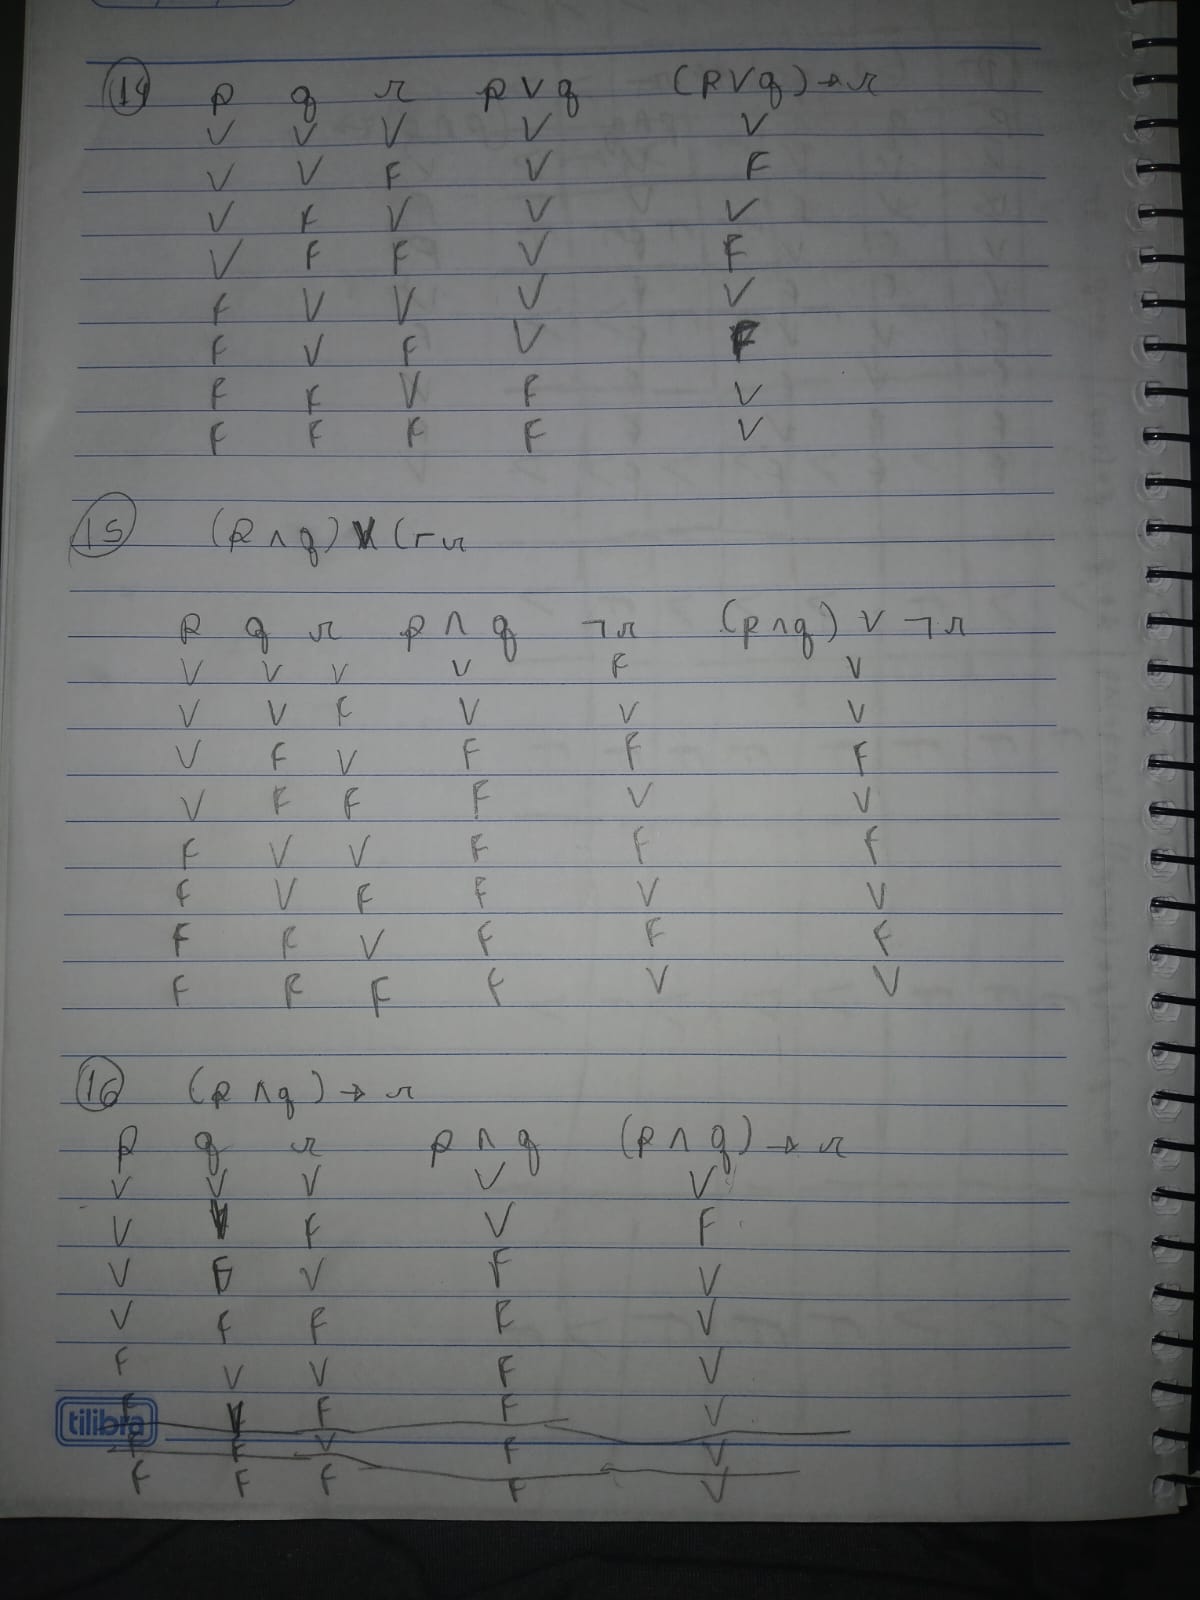 14 p q r p ∨ q (p ∨ q) → r
V V V V V
V V F V F
V F V V V
V F F V F
F V V V V
F V F V F
F F V F V
F F F F V
15 (p ∧ q) V (¬ r
p q r p ∧ q ¬ r (p ∧ q) ∨ ¬ r
V V V V F V
V V F V V V
V F V F F F
V F F F V V
F V V F F F
F V F F V V
F F V F F F
F F F F V V
16 (p ∧ q) → r
p q r p ∧ q (p ∧ q) → r
V V V V V
V V F V F
V F V F V
V F F F V
F V V F V
F V F F V
tilibra
F F V F V
F F F F V